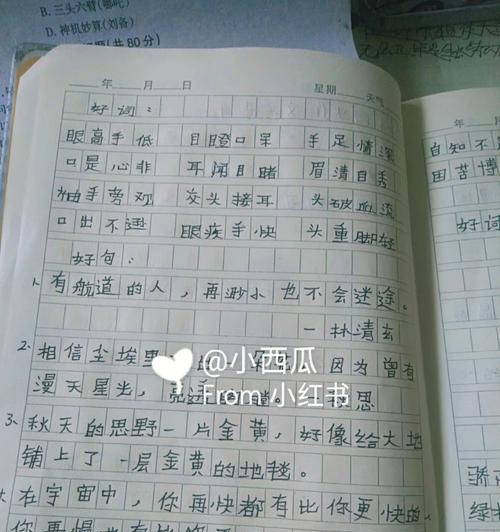 B. 三头六臂(哪吒)
D. 神机妙算(刘备)
(共80分)
年 月 日 星期 天气
好词：
眼高手低 目瞪口呆 手足情深
口是心非 耳闻目睹 眉清目秀
袖手旁观 交头接耳 头破血流
口出不逊 眼疾手快 头重脚轻
好句：
1、有航道的人，再渺小也不会迷途。
—林清玄
2、相信尘埃里 因为曾有
漫天星光，
3、秋天的思野一片金黄，好像给大地
铺上了一层金黄的地毯。
在宇宙中，你再快都有比你更快的，
你再慢也有比你
@小西瓜
From 小红书
年 月
自知不
困苦博
好词
骄
绿